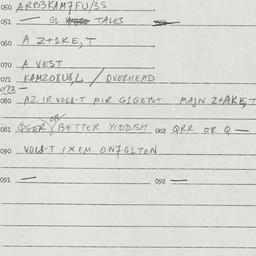 050 ARB3KAM7FU/3S
051 — GL TALES
060 A Z+1KE,T
070 A VEST
071 KAM2O8U&L / OVERHEAD
072 —
080 AZ IR VOL8-T MIR G1GEB+ MAJN Z+AKE,T
081 QGER OR BETTER YIDDISH 082 QRR OR Q—
090 VOL8-T IXEM ON7G1TON
091 — 092 —